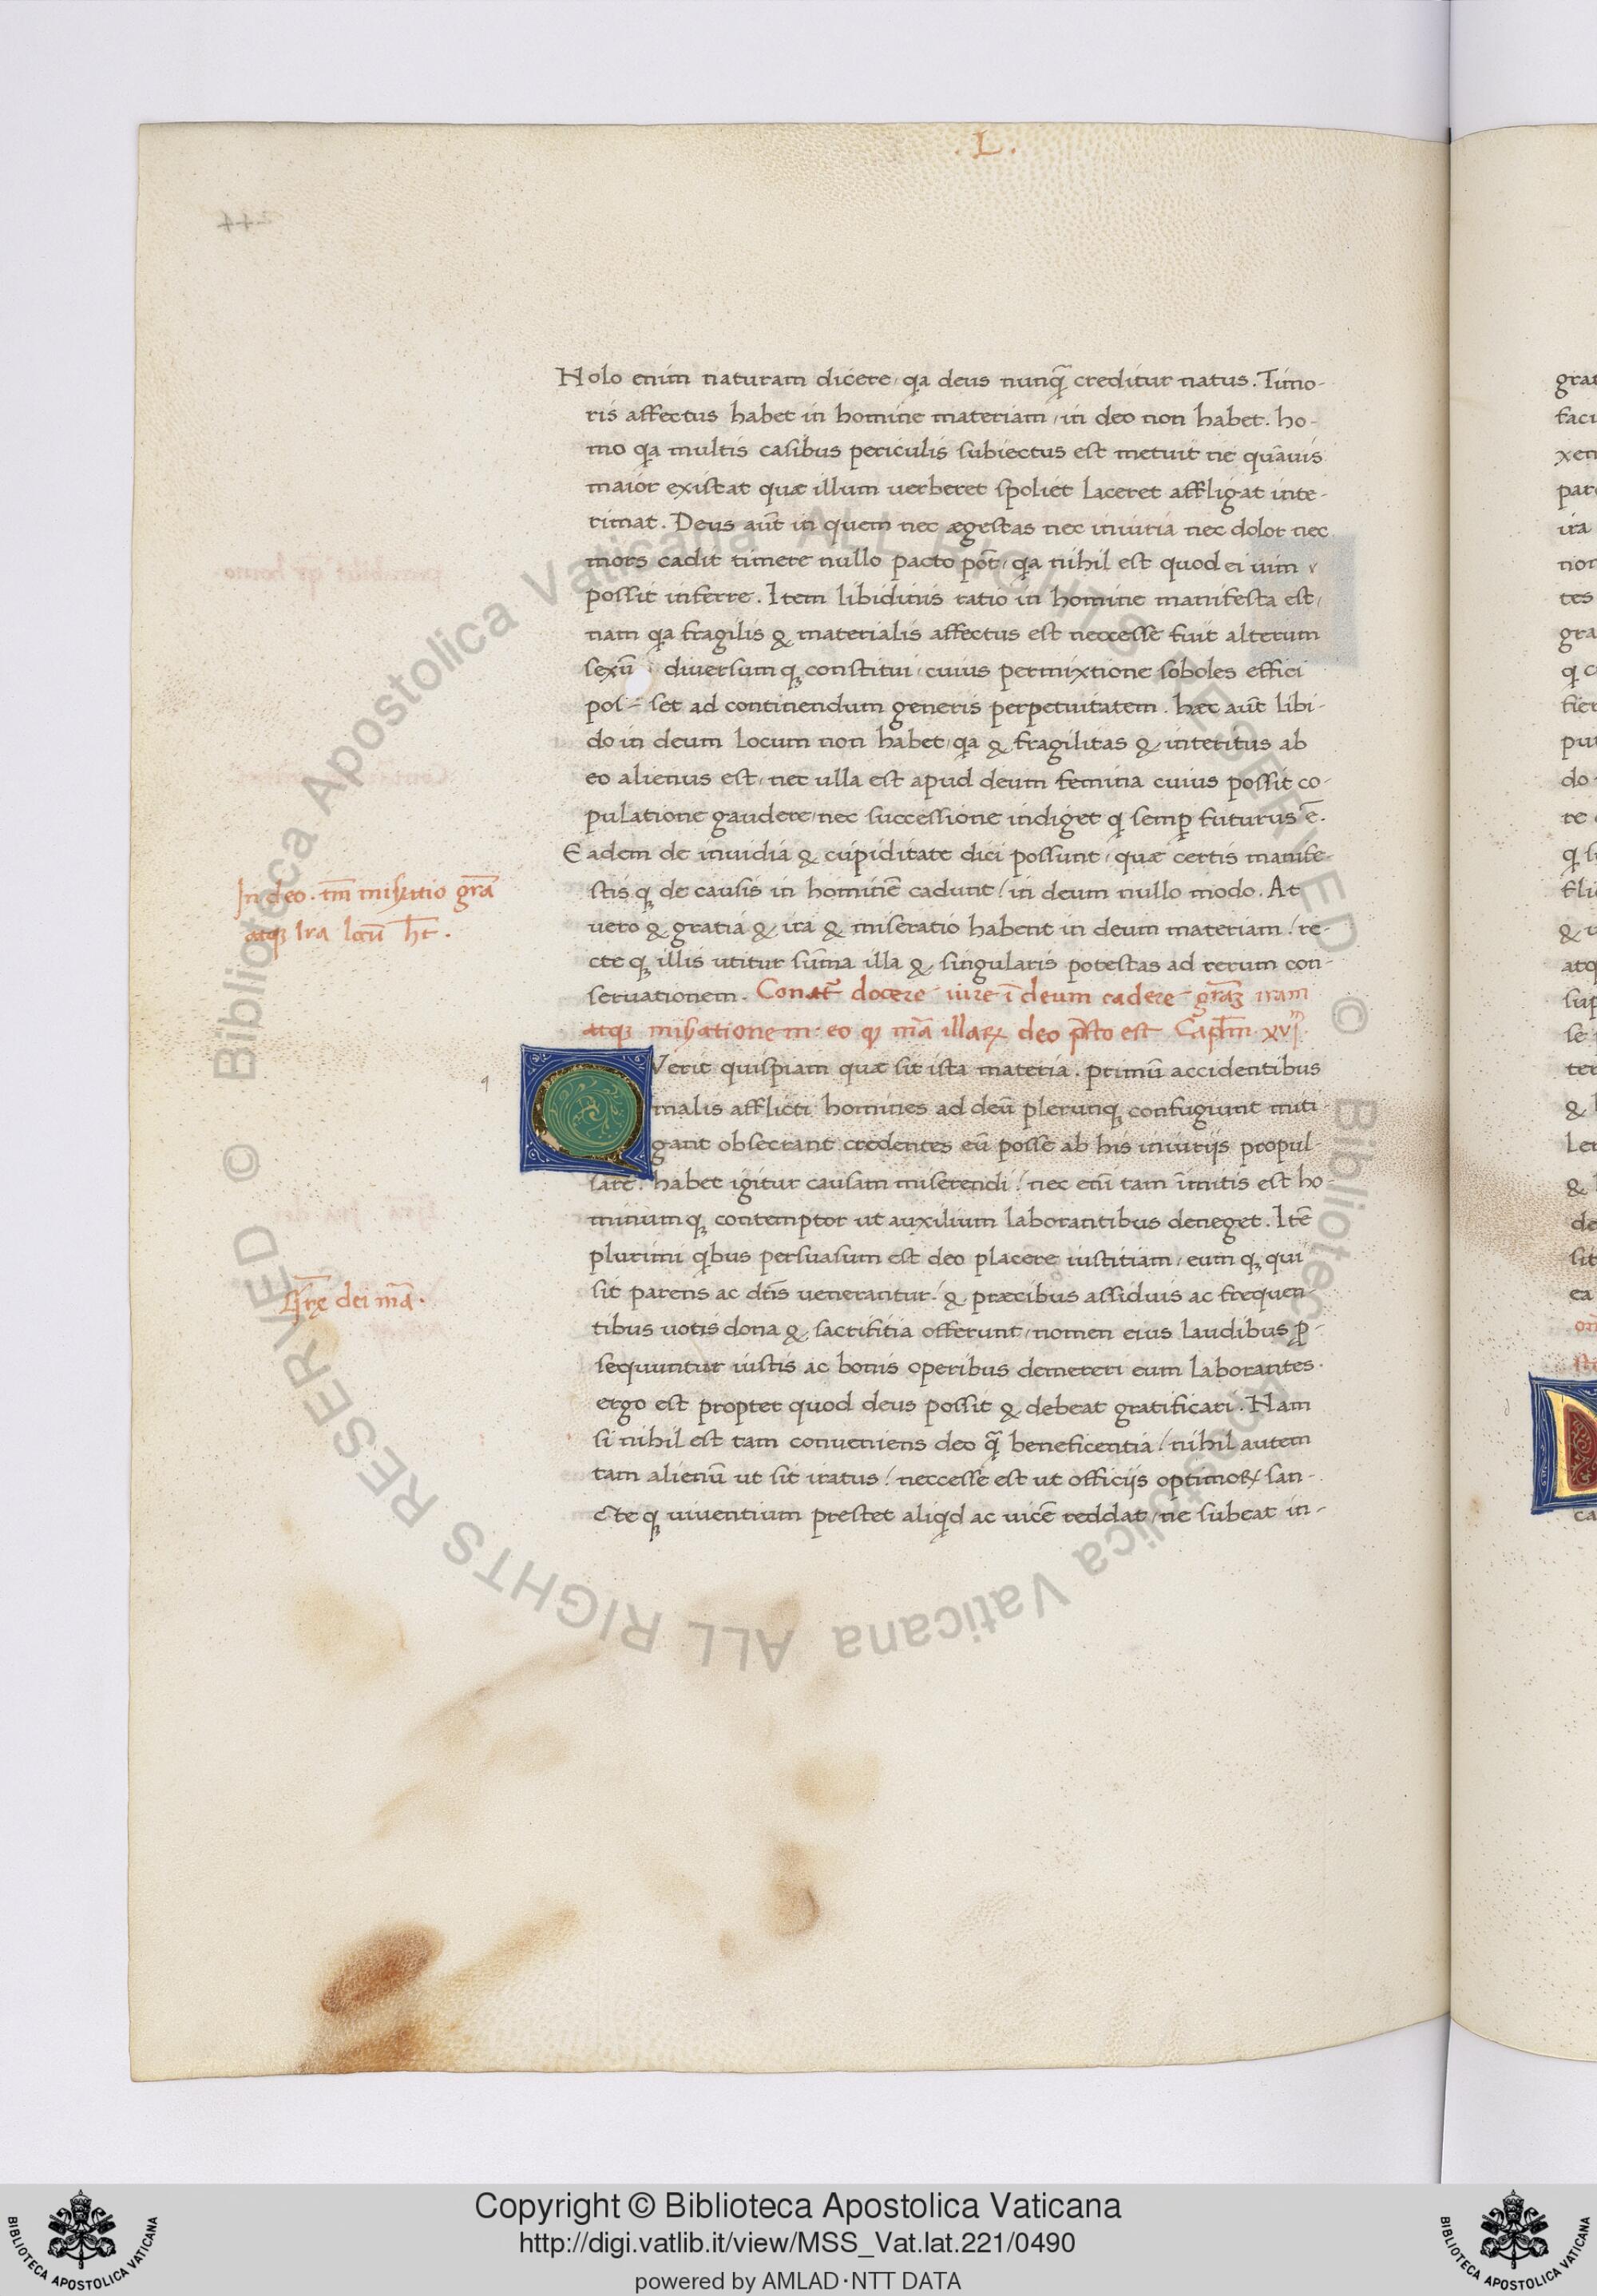 .L.
Nolo enim naturam dicere, qa deus nunq̃ creditur natus. Timo-
ris affectus habet in homine materiam, in deo non habet. ho-
mo qa multis casibus periculis subiectus est metuit ne quãuis
maior existat quæ illum uerberet spoliet laceret affligat inte-
rimat. Deus aut̃ in quem nec ægestas nec iniuria nec dolor nec
mors cadit timere nullo pacto põt, qa nihil est quod ei uim
possit inferre. Item libidinis ratio in homine manifesta est,
nam qa fragilis & materialis affectus est neccesse fuit alterum
sexũ diuersumq; constitui, cuius permixtione soboles effici
pos- set ad continendum generis perpetuitatem. hæc aut̃ libi-
do in deum locum non habet, qa & fragilitas & interitus ab
eo alienus est, nec ulla est apud deum femina cuius possit co-
pulatione gaudere, nec successione indiget q semp futurus ẽ.
Eadem de inuidia & cupiditate dici possunt, quæ certis manife-
stisq; de causis in hominẽ cadunt/ in deum nullo modo. At
In deo. tm̃ misẽratio gr̃a
atq; Ira locũ ht̃.
uero & gratia & ira & miseratio habent in deum materiam/ re-
cteq; illis utitur sum̃a illa & singularis potestas ad rerum con-
seruationem. Conat̃ docere iure ĩ deum cadere gr̃az iram
atq; misẽationem: eo q m̃a illaꝝ deo p̃sto est Capl̃m. xvj.
QVerit quispiam quæ sit ista materia. primũ accidentibus
malis afflicti homines ad deũ plerunq; confugiunt miti-
gant obsecrant credentes eũ posse ab his iniurijs propul-
sare. habet igitur causam miserendi/ nec eni tam ĩmitis est ho-
minumq; contemptor ut auxilium laborantibus deneget. Itẽ
plurimi qbus persuasum est deo placere iustitiam, eumq; qui
dei m̃a.
sit parens ac dñs uenerantur/ & præcibus assiduis ac frequen-
tibus uotis dona & sacrifitia offerunt, nomen eius laudibus ꝑ-
sequuntur iustis ac bonis operibus demereri eum laborantes.
ergo est propter quod deus possit & debeat gratificari. Nam
si nihil est tam conueniens deo q̃ beneficentia/ nihil autem
tam alienũ ut sit iratus/ neccesse est ut officijs optimoꝝ san-
cteq; uiuentium prestet aliqd ac uicẽ reddat, ne subeat in-
© Biblioteca Apostolica Vaticana ALL RIGHTS RESERVED © Biblioteca Apostolica Vaticana ALL RIGHTS RESERVED
Copyright © Biblioteca Apostolica Vaticana
http://digi.vatlib.it/view/MSS_Vat.lat.221/0490
powered by AMLAD·NTT DATA
BIBLIOTECA APOSTOLICA VATICANA
BIBLIOTECA APOSTOLICA VATICANA